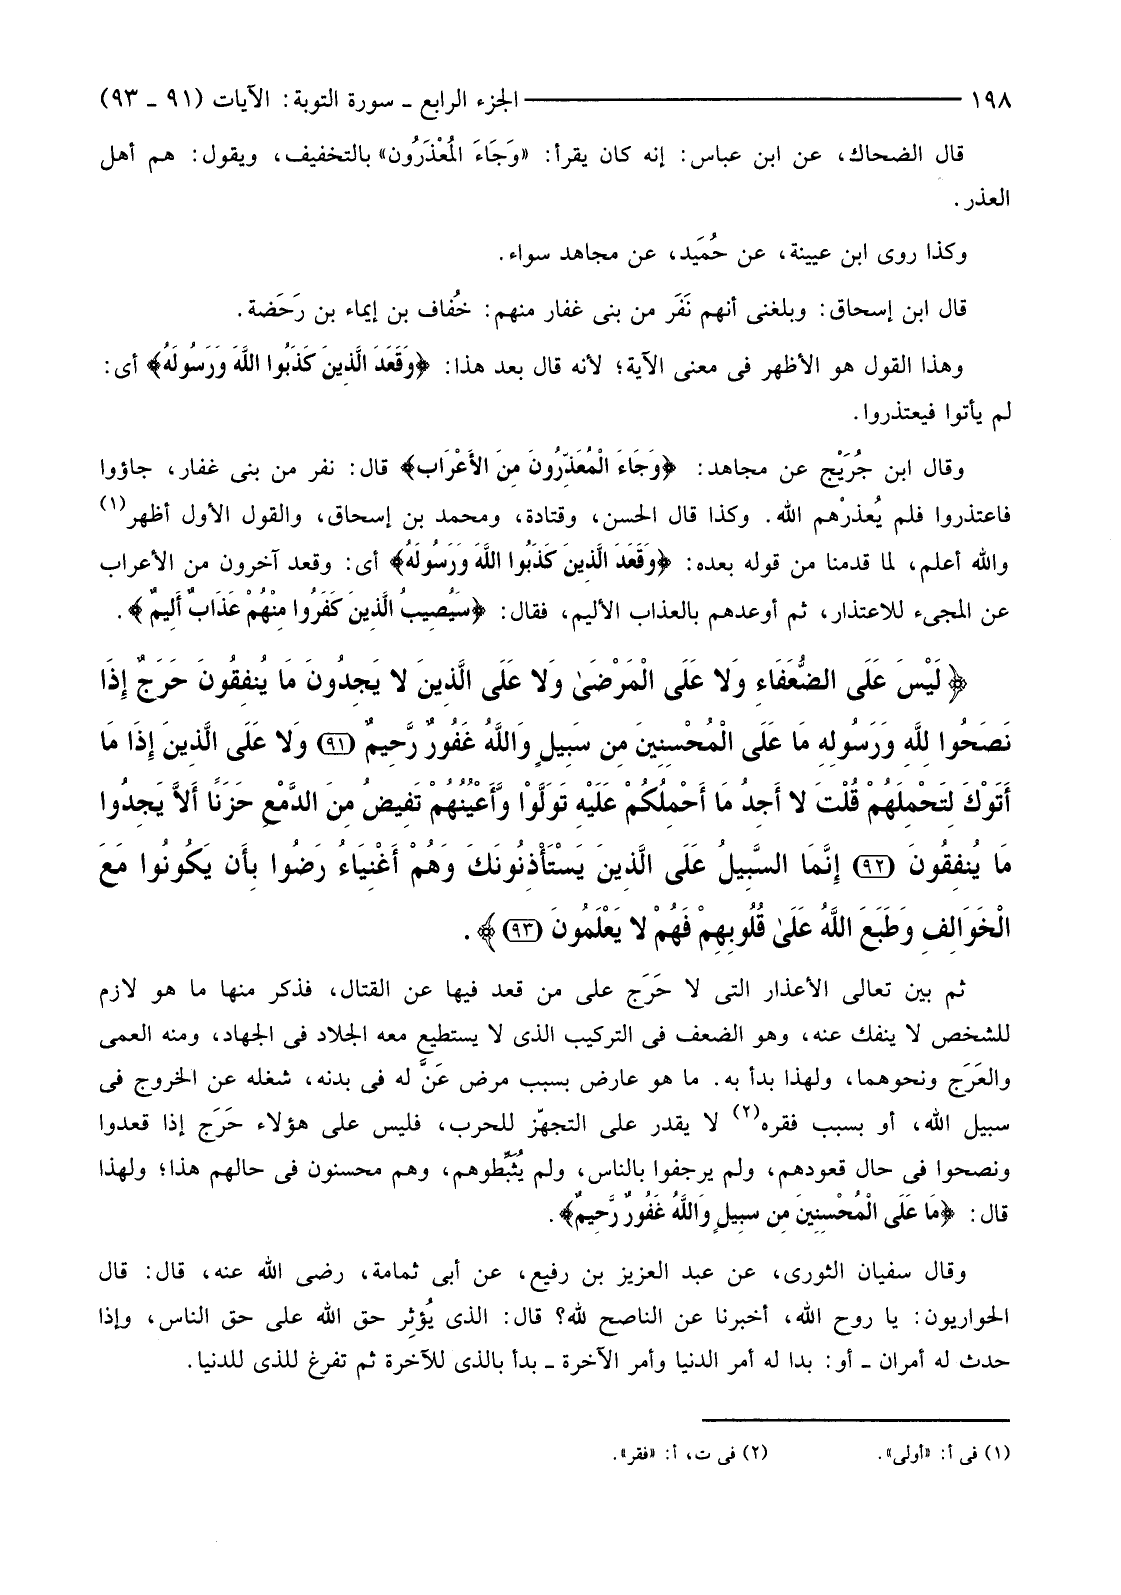 ١٩٨ ــــــــــــــــ الجزء الرابع ـ سورة التوبة: الآيات (٩١ ـ ٩٣)
قال الضحاك، عن ابن عباس: إنه كان يقرأ: «وَجَاءَ المُعْذَرُون» بالتخفيف، ويقول: هم أهل
العذر.
وكذا روى ابن عيينة، عن حُمَيد، عن مجاهد سواء.
قال ابن إسحاق: وبلغنى أنهم نَفَر من بنى غفار منهم: خُفاف بن إيماء بن رَحَضة.
وهذا القول هو الأظهر فى معنى الآية؛ لأنه قال بعد هذا: ﴿وَقَعَدَ الَّذِينَ كَذَبُوا اللَّهَ وَرَسُولَهُ﴾ أى:
لم يأتوا فيعتذروا.
وقال ابن جُرَيْج عن مجاهد: ﴿وَجَاءَ الْمُعَذِّرُونَ مِنَ الأَعْرَابِ﴾ قال: نفر من بنى غفار، جاؤوا
فاعتذروا فلم يُعذرْهم الله. وكذا قال الحسن، وقتادة، ومحمد بن إسحاق، والقول الأول أظهر(١)
والله أعلم، لما قدمنا من قوله بعده: ﴿وَقَعَدَ الَّذِينَ كَذَبُوا اللَّهَ وَرَسُولَهُ﴾ أى: وقعد آخرون من الأعراب
عن المجىء للاعتذار، ثم أوعدهم بالعذاب الأليم، فقال: ﴿سَيُصِيبُ الَّذِينَ كَفَرُوا مِنْهُمْ عَذَابٌ أَلِيمٌ﴾.
﴿لَيْسَ عَلَى الضُّعَفَاءِ وَلا عَلَى الْمَرْضَىٰ وَلا عَلَى الَّذِينَ لا يَجِدُونَ مَا يُنفِقُونَ حَرَجٌ إِذَا
نَصَحُوا لِلَّهِ وَرَسُولِهِ مَا عَلَى الْمُحْسِنِينَ مِن سَبِيلٍ وَاللَّهُ غَفُورٌ رَّحِيمٌ (٩١) وَلا عَلَى الَّذِينَ إِذَا مَا
أَتَوْكَ لِتَحْمِلَهُمْ قُلْتَ لا أَجِدُ مَا أَحْمِلُكُمْ عَلَيْهِ تَوَلَّوْا وَّأَعْيُنُهُمْ تَفِيضُ مِنَ الدَّمْعِ حَزَنًا أَلاَّ يَجِدُوا
مَا يُنفِقُونَ (٩٢) إِنَّمَا السَّبِيلُ عَلَى الَّذِينَ يَسْتَأْذِنُونَكَ وَهُمْ أَغْنِيَاءُ رَضُوا بِأَن يَكُونُوا مَعَ
الْخَوَالِفِ وَطَبَعَ اللَّهُ عَلَىٰ قُلُوبِهِمْ فَهُمْ لا يَعْلَمُونَ (٩٣)﴾.
ثم بين تعالى الأعذار التى لا حَرَج على من قعد فيها عن القتال، فذكر منها ما هو لازم
للشخص لا ينفك عنه، وهو الضعف فى التركيب الذى لا يستطيع معه الجلاد فى الجهاد، ومنه العمى
والعَرَج ونحوهما، ولهذا بدأ به. ما هو عارض بسبب مرض عَنَّ له فى بدنه، شغله عن الخروج فى
سبيل الله، أو بسبب فقره(٢) لا يقدر على التجهّز للحرب، فليس على هؤلاء حَرَج إذا قعدوا
ونصحوا فى حال قعودهم، ولم يرجفوا بالناس، ولم يُثَبِّطوهم، وهم محسنون فى حالهم هذا؛ ولهذا
قال: ﴿مَا عَلَى الْمُحْسِنِينَ مِن سَبِيلٍ وَاللَّهُ غَفُورٌ رَّحِيمٌ﴾.
وقال سفيان الثورى، عن عبد العزيز بن رفيع، عن أبى ثمامة، رضى الله عنه، قال: قال
الحواريون: يا روح الله، أخبرنا عن الناصح لله؟ قال: الذى يُؤثِر حق الله على حق الناس، وإذا
حدث له أمران ـ أو: بدا له أمر الدنيا وأمر الآخرة ـ بدأ بالذى للآخرة ثم تفرغ للذى للدنيا.
(١) فى أ: «أولى». (٢) فى ت، أ: «فقر».